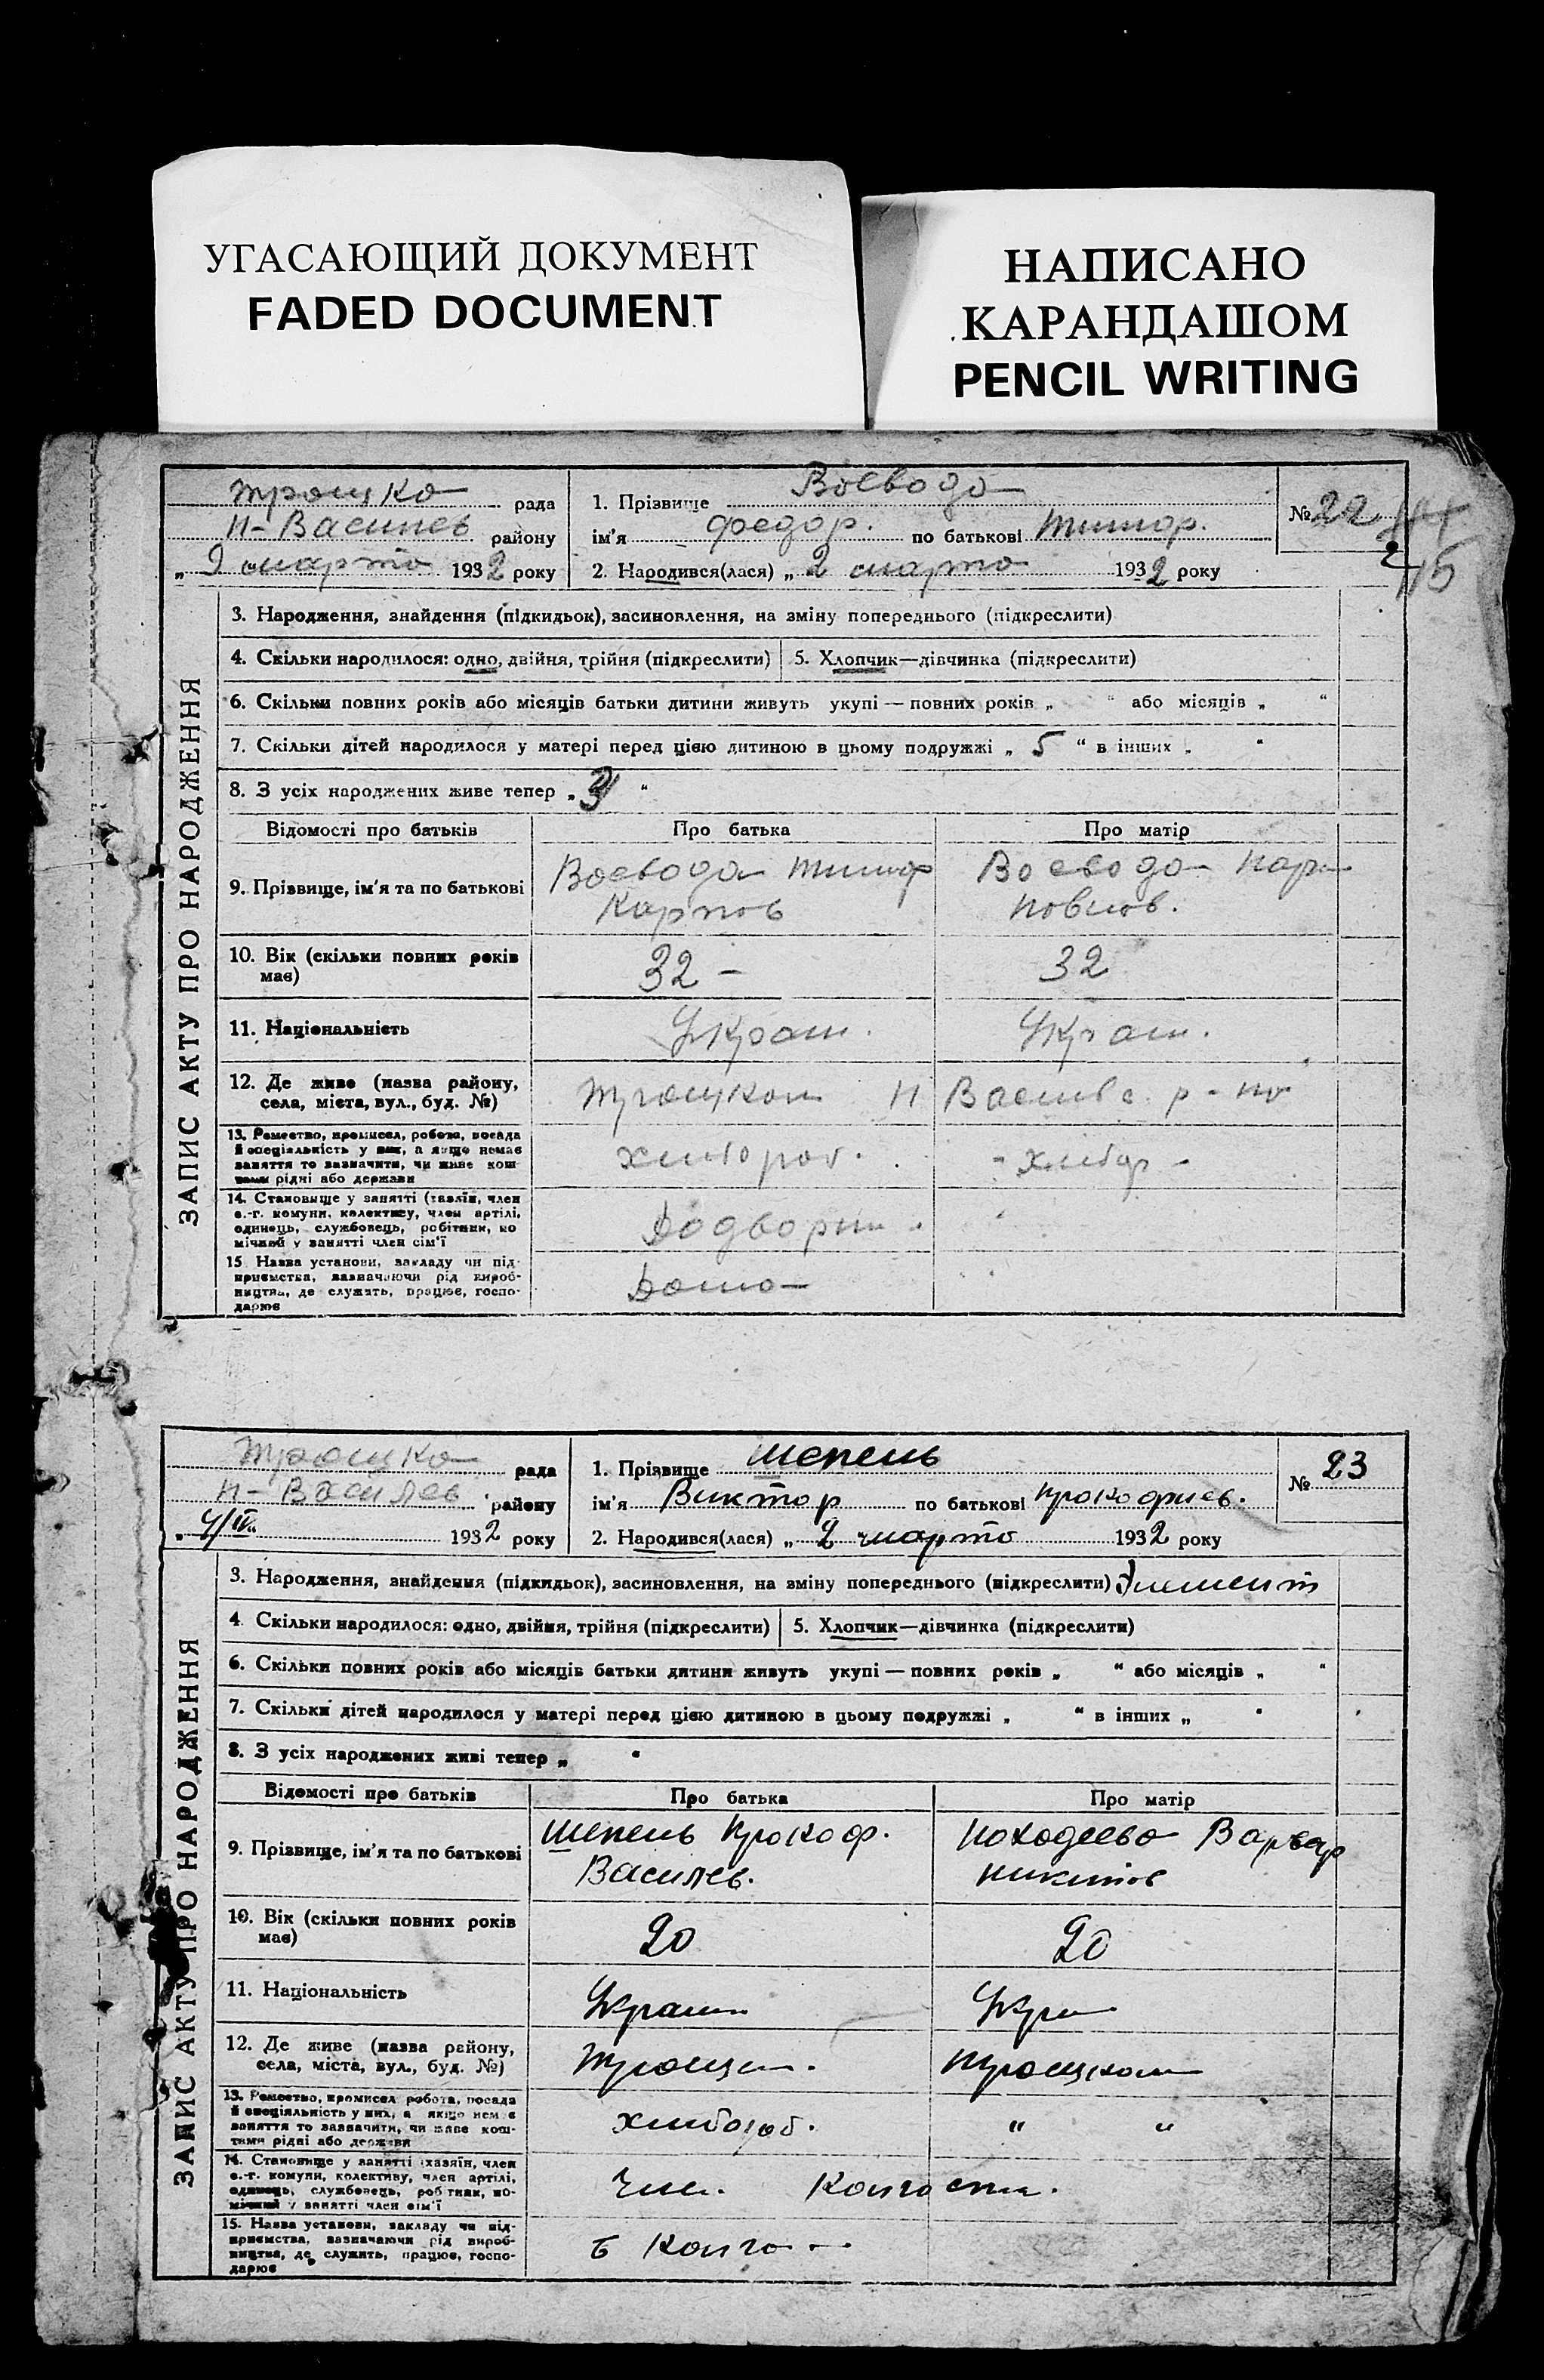 УГАСАЮЩИЙ ДОКУМЕНТ
FADED DOCUMENT
НАПИСАНО
КАРАНДАШОМ
PENCIL WRITING
рада
Н-Василев району
„ 9 марта 1932 року
1. Прізвище Воевода
ім'я Федор. по батькові Тимоф.
2. Народився(лася) „ 2 марта 1932 року
№ 22
115
ЗАПИС АКТУ ПРО НАРОДЖЕННЯ
3. Народження, знайдення (підкидьок), засиновлення, на зміну попереднього (підкреслити)
4. Скільки народилося: одно, двійня, трійня (підкреслити)
5. Хлопчик—дівчинка (підкреслити)
6. Скільки повних років або місяців батьки дитини живуть укупі — повних років „ “ або місяців „ “
7. Скільки дітей народилося у матері перед цією дитиною в цьому подружжі „ 5 “ в інших „ “
8. З усіх народжених живе тепер „ 3 “
Відомості про батьків
Про батька
Про матір
9. Прізвище, ім'я та по батькові
Воевода Тимоф
Карпов
Воевода
Павлов.
10. Вік (скільки повних років
має)
32 –
32
11. Національність
Украин.
Украин.
12. Де живе (назва району,
села, міста, вул., буд. №)
Н Василів. р-на
13. Ремество, промисел, робота, посада
й спеціяльність у них, а якщо немає
заняття то зазначити, чи живе кош-
тами рідні або держави
хлибороб.
- Хлибор -
14. Становище у занятті (хазяїн, член
с.-г. комуни, колективу, член артілі,
одинець, службовець, робітник, по
мічний у занятті член сім'ї
15. Назва установи, закладу чи під-
приємства, зазначаючи рід вироб-
ництва, де служить, працює, госпо-
дарює
Дома
рада
Н-Василев району
„ 4/III 1932 року
1. Прізвище Шепель
ім'я Виктор по батькові Прокофиев.
2. Народився(лася) „ 2 марта 1932 року
№ 23
ЗАПИС АКТУ ПРО НАРОДЖЕННЯ
3. Народження, знайдення (підкидьок), засиновлення, на зміну попереднього (підкреслити)
4. Скільки народилося: одно, двійня, трійня (підкреслити)
5. Хлопчик—дівчинка (підкреслити)
6. Скільки повних років або місяців батьки дитини живуть укупі — повних років „ “ або місяців „ “
7. Скільки дітей народилося у матері перед цією дитиною в цьому подружжі „ “ в інших „ “
8. З усіх народжених живі тепер „ “
Відомості про батьків
Про батька
Про матір
9. Прізвище, ім'я та по батькові
Шепель Прокоф.
Василев.
Походеева Варвар
Никитов
10. Вік (скільки повних років
має)
20
20
11. Національність
Украин
Укра
12. Де живе (назва району,
села, міста, вул., буд. №)
13. Ремество, промисел робота, посада
й спеціяльність у них, а якщо немає
заняття то зазначити, чи живе кош-
тами рідні або держави
хлибороб.
“ “
14. Становище у занятті (хазяїн, член
с.-г. комуни, колективу, член артілі,
одинець, службовець, робітник, по-
мічний у занятті член сім'ї
Член. Колгоспа.
15. Назва установи, закладу чи під-
приємства, зазначаючи рід вироб-
ництва, де служить, працює, госпо-
дарює